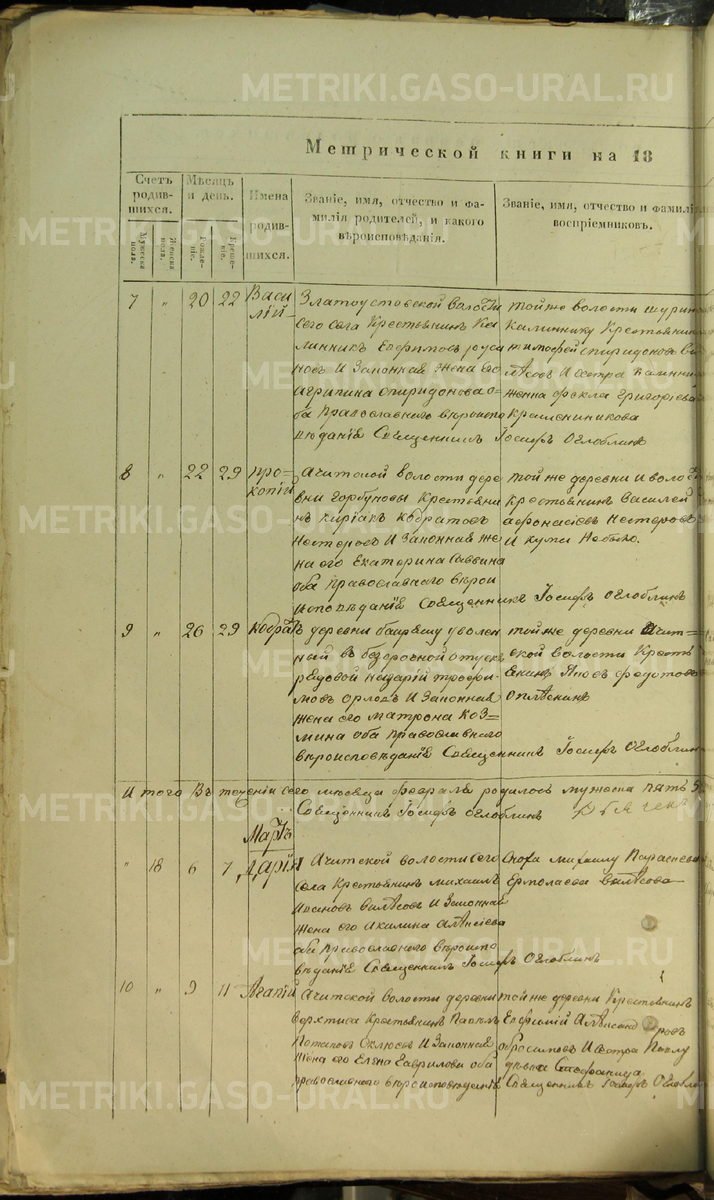 METRIKI.GASO-URAL.RU
Метрической книги на 18
Счетъ родившихся.
Мужеска полъ.
Женска полъ.
Мѣсяцъ и день.
Рожденіе.
Крещеніе.
Имена родившихся.
Званіе, имя, отчество и фамилія родителей, и какого вѣроисповѣданія.
Званіе, имя, отчество и фамилія воспріемниковъ.
7 " 20 22 Василій
Златоустовской волости
сего села Крестьянинъ Калинникъ Евфимовъ
и законная жена его
Агрипина Спиридонова оба православнаго вѣроисповѣданія Священникъ Іосифъ Оглоблинъ
той же волости шуринъ
Калиннику Крестьянинъ
Тимофей Спиридоновъ
и сестра
Фекла Григорьева
Крашенинникова
8 " 22 29 Прокопій
Ачитской волости деревни Горбуновы Крестьянинъ Киріакъ Кодратовъ
Нестеровъ и законная жена его Екатерина Саввина
оба православнаго вѣроисповѣданія Священникъ Іосифъ Оглоблинъ
той же деревни и волости
крестьянинъ Василей
Афонасіевъ Нестеровъ
и кумы не было.
9 " 26 29 Кодратъ
деревни уволенный въ безсрочной отпускъ
рядовой Назарій Трофимовъ Орловъ и законная
жена его Матрона Козмина оба православнаго
вѣроисповѣданія Священникъ Іосифъ Оглоблинъ
той же деревни Ачитской волости Крестьянинъ Яковъ Федотовъ
Итого въ теченіи сего мѣсяца февраля родилось мужеска пять 5
Священникъ Іосифъ Оглоблинъ
Мартъ
" 18 6 7 Дарія
Ачитской волости сего
села Крестьянинъ Михаилъ
Ивановъ и законная
жена его Акилина Алексіева
оба православнаго вѣроисповѣданія Священникъ Іосифъ Оглоблинъ
Сноха Михаилу Параскева
Ермолаева
10 " 9 11 Агапій
Ачитской волости деревни
Верхтиса Крестьянинъ Павелъ
Потаповъ и законная
жена его Елена Гаврилова оба
православнаго вѣроисповѣданія
той же деревни Крестьянинъ
Евфимій Александровъ
и сестра Павлу
Священникъ Іосифъ Оглоблинъ